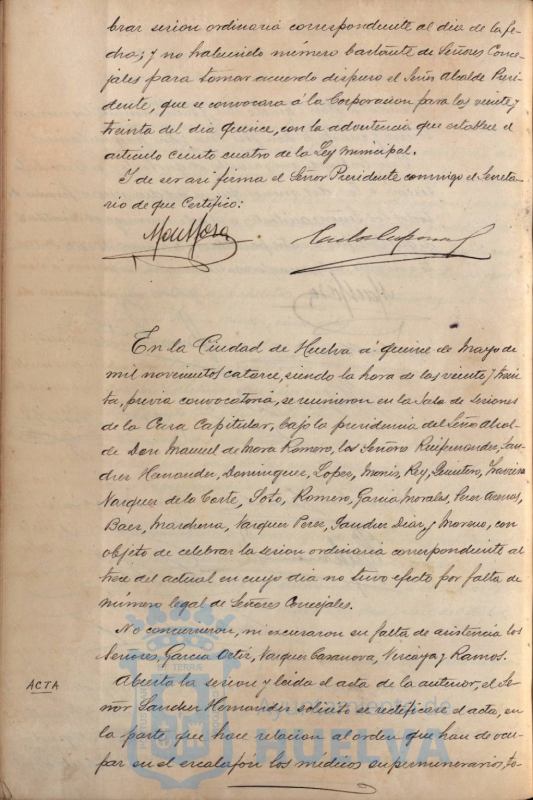 brar sesion ordinaria correspondiente al dia de la fe-
cha; y no habiendo número bastante de Señores Conce-
jales para tomar acuerdo dispuso el Señor Alcalde Presi-
dente, que se convocara á la Corporacion para las veinte y
treinta del dia quince, con la advertencia que establece el
articulo ciento cuatro de la Ley Municipal.
Y de ser asi firma el Señor Presidente conmigo el Secreta-
rio de que Certifico:
En la Ciudad de Huelva á quince de Mayo de
mil novecientos catorce, siendo la hora de las veinte y trein-
ta, previa convocatoria, se reunieron en la Sala de Sesiones
de la Casa Capitular, bajo la presidencia del Señor Alcal-
de Don Manuel de Mora Romero, los Señores Ruifernandez, San-
chez Hernandez, Dominguez, Lopez, Monis, Rey, Quintero,
Vazquez de la Corte, Soto, Romero, Garcia Morales, Perez
Baez, Mardiena, Vazquez Perez, Sanchez Diaz, y Moreno, con
objeto de celebrar la sesion ordinaria correspondiente al
trece del actual en cuyo dia no tuvo efecto por falta de
número legal de Señores Concejales.
No concurrieron, ni excusaron su falta de asistencia los
Señores, Garcia Ortiz, Vazquez Casanova, Vizcaya y Ramos.
ACTA
Abierta la sesion y leida el acta de la anterior, el Se-
ñor Sanchez Hernandez solicitó se rectificase el acta, en
la parte, que hace relacion al orden que han de ocu-
par en el escalafon los médicos supernumerarios,
Ayuntamiento de
HUELVA